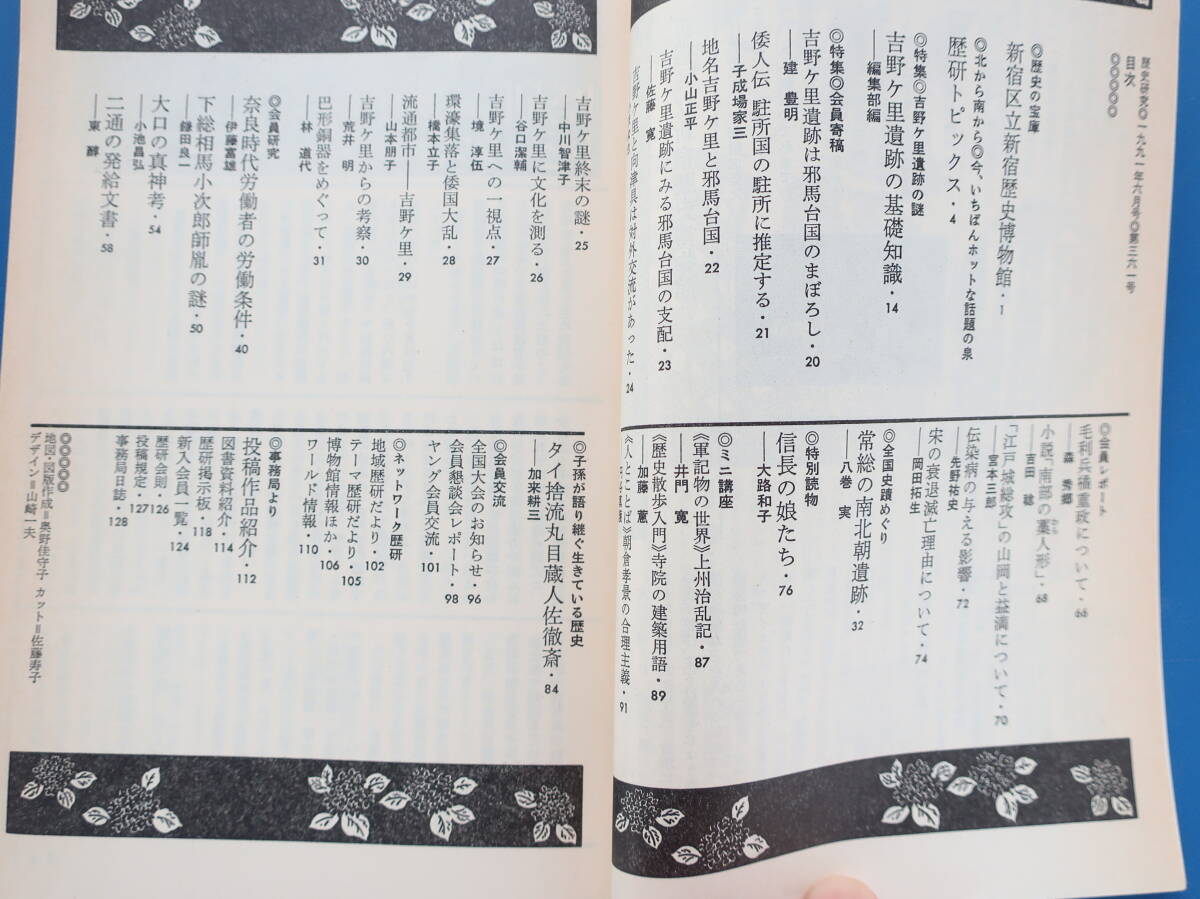 歴史研究◎一九九一年六月号◎第三六一号
目次
◎◎◎◎◎
◎歴史の宝庫
新宿区立新宿歴史博物館・1
◎北から南から◎今、いちばんホットな話題の泉
歴研トピックス・4
◎特集◎吉野ケ里遺跡の謎
吉野ケ里遺跡の基礎知識・14
──編集部編
◎特集◎会員寄稿
吉野ケ里遺跡は邪馬台国のまぼろし・20
──建 豊明
倭人伝 駐所国の駐所に推定する・21
──子成場家三
地名吉野ケ里と邪馬台国・22
──小山正平
吉野ケ里遺跡にみる邪馬台国の支配・23
──佐藤 寛
吉野ケ里と向津具は対外交流があった・24
吉野ケ里終末の謎・25
──中川智津子
吉野ケ里に文化を測る・26
──谷口潔輔
吉野ケ里への一視点・27
──境 淳伍
環濠集落と倭国大乱・28
──橋本立子
流通都市──吉野ケ里・29
──山本朋子
吉野ケ里からの考察・30
──荒井 明
巴形銅器をめぐって・31
──林 道代
◎会員研究
奈良時代労働者の労働条件・40
──伊藤富雄
下総相馬小次郎師胤の謎・50
──鎌田良一
大口の真神考・54
──小池昌弘
二通の発給文書・58
──東 酵
◎会員レポート
毛利兵橘重政について・66
──森 秀郷
小説「南部の藁人形」・68
──吉田 稔
「江戸城総攻」の山岡と益満について・70
──宮本三郎
伝染病の与える影響・72
──先野祐史
宋の衰退滅亡理由について・74
──岡田拓生
◎全国史蹟めぐり
常総の南北朝遺跡・32
──八巻 実
◎特別読物
信長の娘たち・76
──大路和子
◎ミニ講座
《軍記物の世界》上州治乱記・87
──井門 寛
《歴史散歩入門》寺院の建築用語・89
──加藤 蕙
《人とことば》朝倉孝景の合理主義・91
◎子孫が語り継ぐ生きている歴史
タイ捨流丸目蔵人佐徹斎・84
──加来耕三
◎会員交流
全国大会のお知らせ・96
会員懇談会レポート・98
ヤング会員交流・101
◎ネットワーク歴研
地域歴研だより・102
テーマ歴研だより・105
博物館情報ほか・106
ワールド情報・110
◎事務局より
投稿作品紹介・112
図書資料紹介・114
歴研掲示板・118
新入会員一覧・124
歴研会則・126
投稿規定・127
事務局日誌・128
◎◎◎◎◎
地図・図版作成＝奥野佳守子 カット＝佐藤寿子
デザイン＝山崎一夫